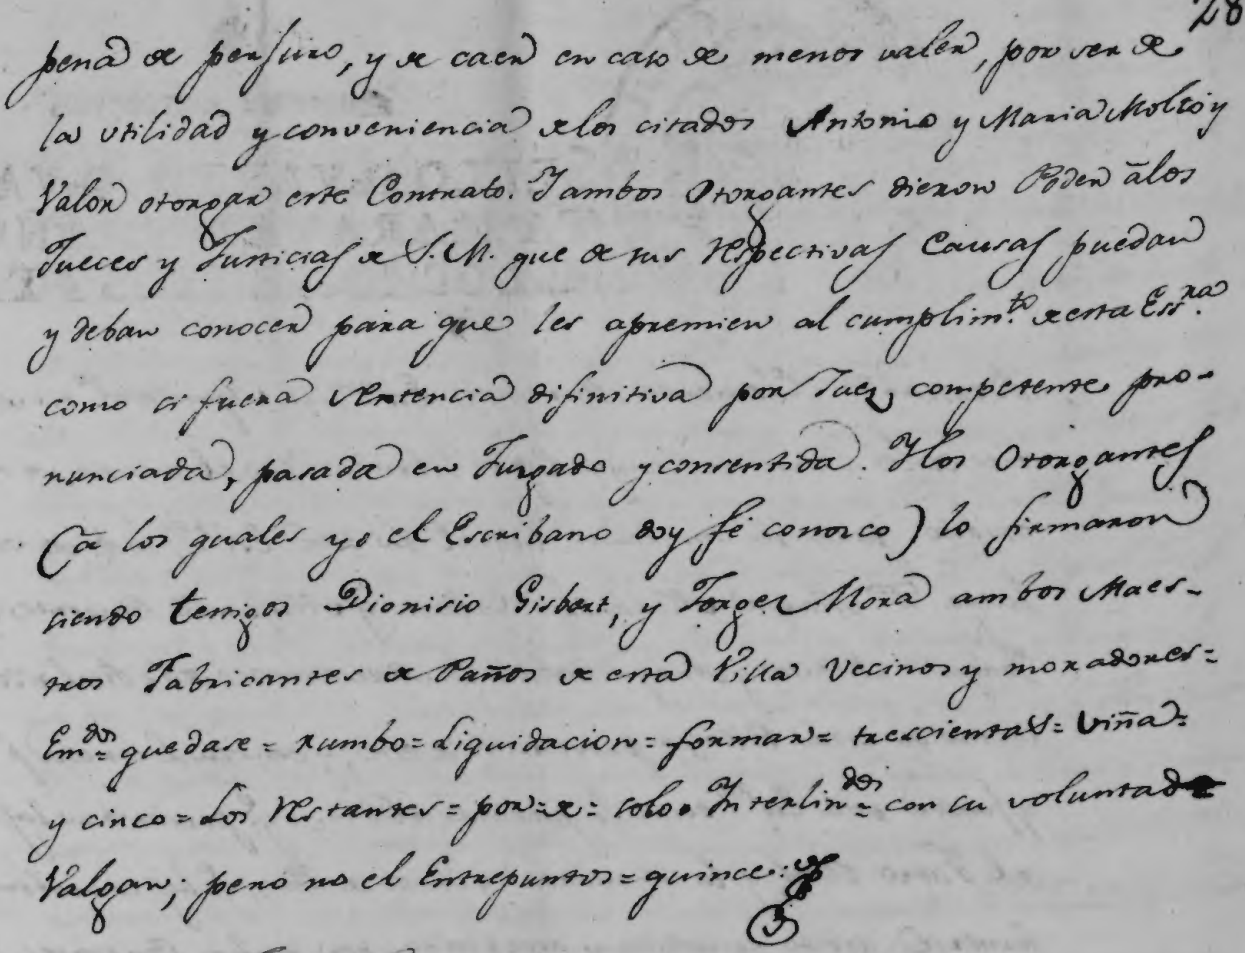 28
pena de perjuro, y de caer en caso de menos valer, por ser de
la utilidad y conveniencia delos citados Antonio y Maria Moltó y
Valor otorgar este Contrato. Yambos Otorgantes dieron Poder álos
Jueces y Justicias de S. M. que de sus respectivas Causas puedan
y deban conocer para que les apremien al cumplim.to de esta Ess.ra
como si fuera sentencia difinitiva por Juez competente pro-
nunciada, pasada en Juzgado y consentida. Ylos Otorgantes
(á los quales yo el Escribano doy fé conosco) lo firmaron
siendo testigos Dionisio Gisbert, y Jorge Mora ambos Maes-
tros Fabricantes de Paños de esta Villa Vecinos y moradores=
Em.dos= quedase= rumbo= Liquidacion= formar= trescientas= viña=
y cinco= Los restantes= por= de= solo. Interlin.dos= con su voluntad
Valgan; pero no el Entrepuntos= quince: